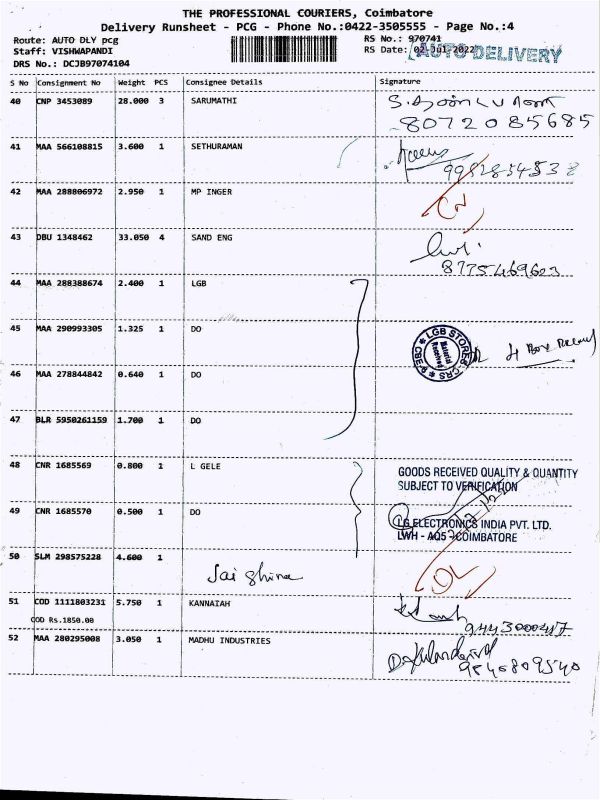 THE PROFESSIONAL COURIERS, Coimbatore
Delivery Runsheet - PCG - Phone No.:0422-3505555 - Page No.:4
Route: AUTO DLY pcg RS No.: 970741
Staff: VISHWAPANDI RS Date: 02-Jul-2022 AUTO DELIVERY
DRS No.: DCJB97074104
S No Consignment No Weight PCS Consignee Details Signature
40 CNP 3453089 28.000 3 SARUMATHI
8072085685
41 MAA 566108815 3.600 1 SETHURAMAN
42 MAA 288806972 2.950 1 MP INGER
43 DBU 1348462 33.050 4 SAND ENG
8775469603
44 MAA 288388674 2.400 1 LGB
45 MAA 290993305 1.325 1 DO
LGB STORES CRS CBE-6 Material Received 4 Box
46 MAA 278844842 0.640 1 DO
47 BLR 5950261159 1.700 1 DO
48 CNR 1685569 0.800 1 L GELE
GOODS RECEIVED QUALITY & QUANTITY
SUBJECT TO VERIFICATION
49 CNR 1685570 0.500 1 DO
LG ELECTRONICS INDIA PVT. LTD.
LWH - AQ5 - COIMBATORE
50 SLM 298575228 4.600 1
Jai Shina OL
51 COD 1111803231 5.750 1 KANNAIAH
COD Rs.1850.00
52 MAA 280295008 3.050 1 MADHU INDUSTRIES